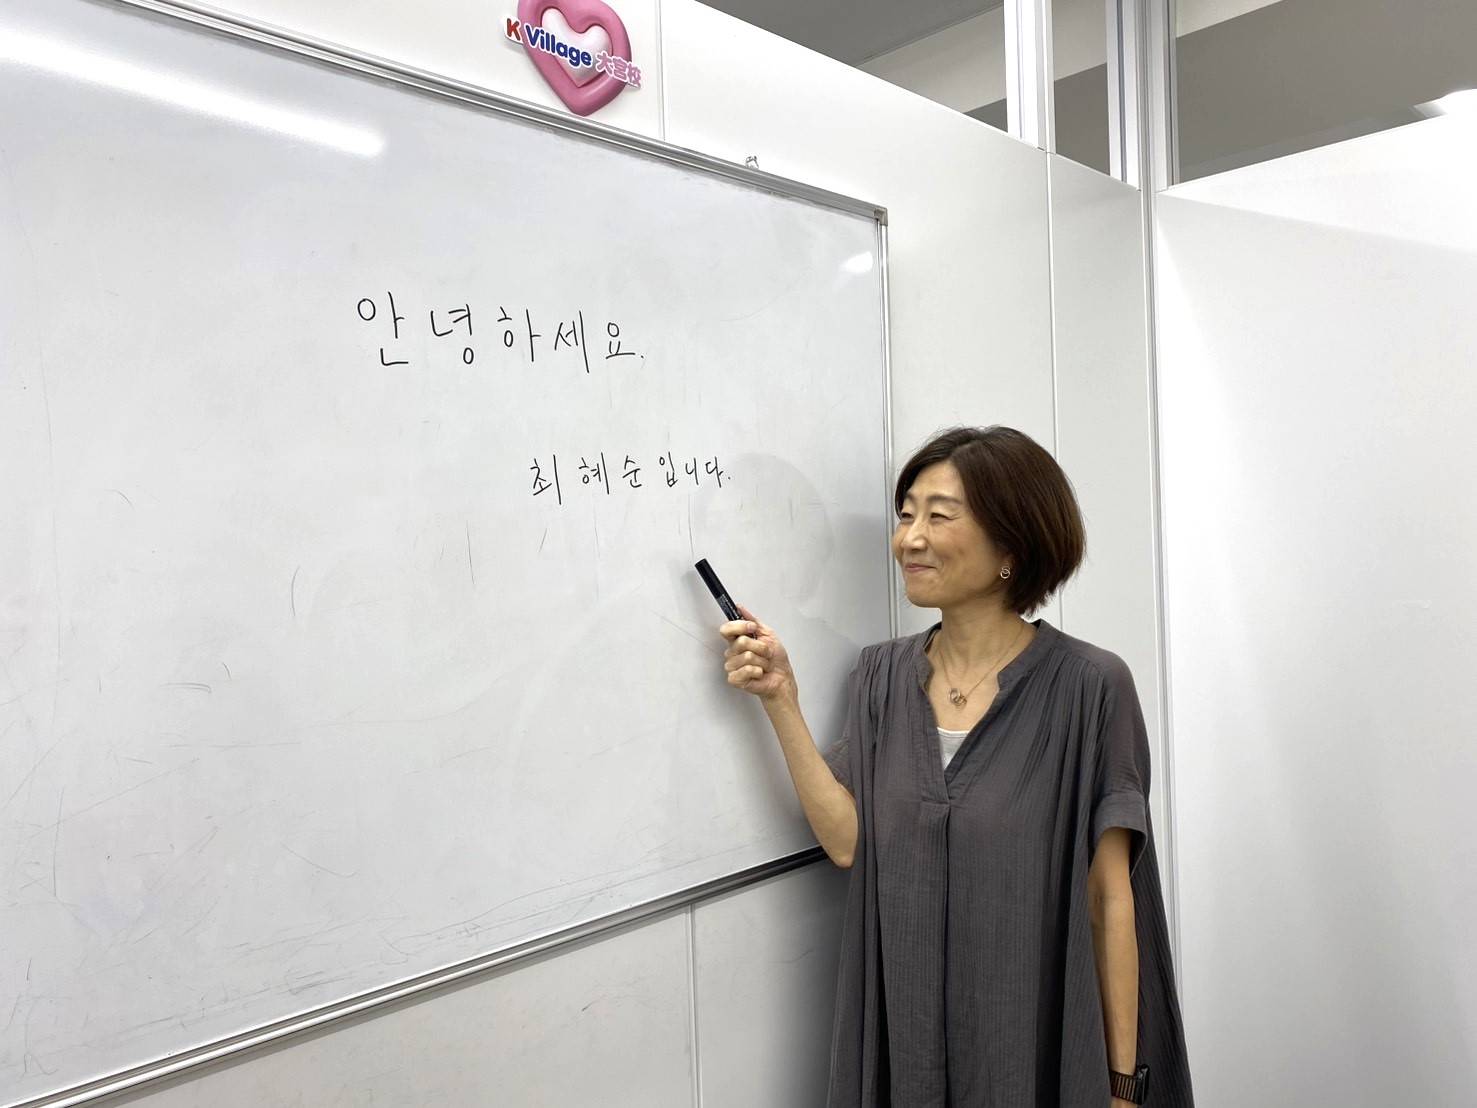 K Village 大宮校
안녕하세요.
최혜순입니다.